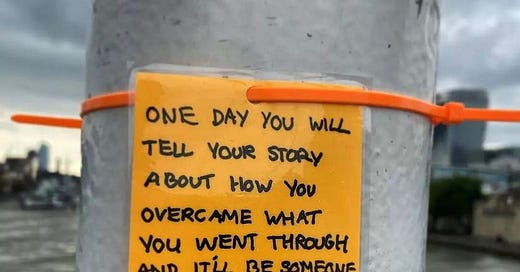 ONE DAY YOU WILL
TELL YOUR STORY
ABOUT HOW YOU
OVERCAME WHAT
YOU WENT THROUGH
AND IT'LL BE SOMEONE